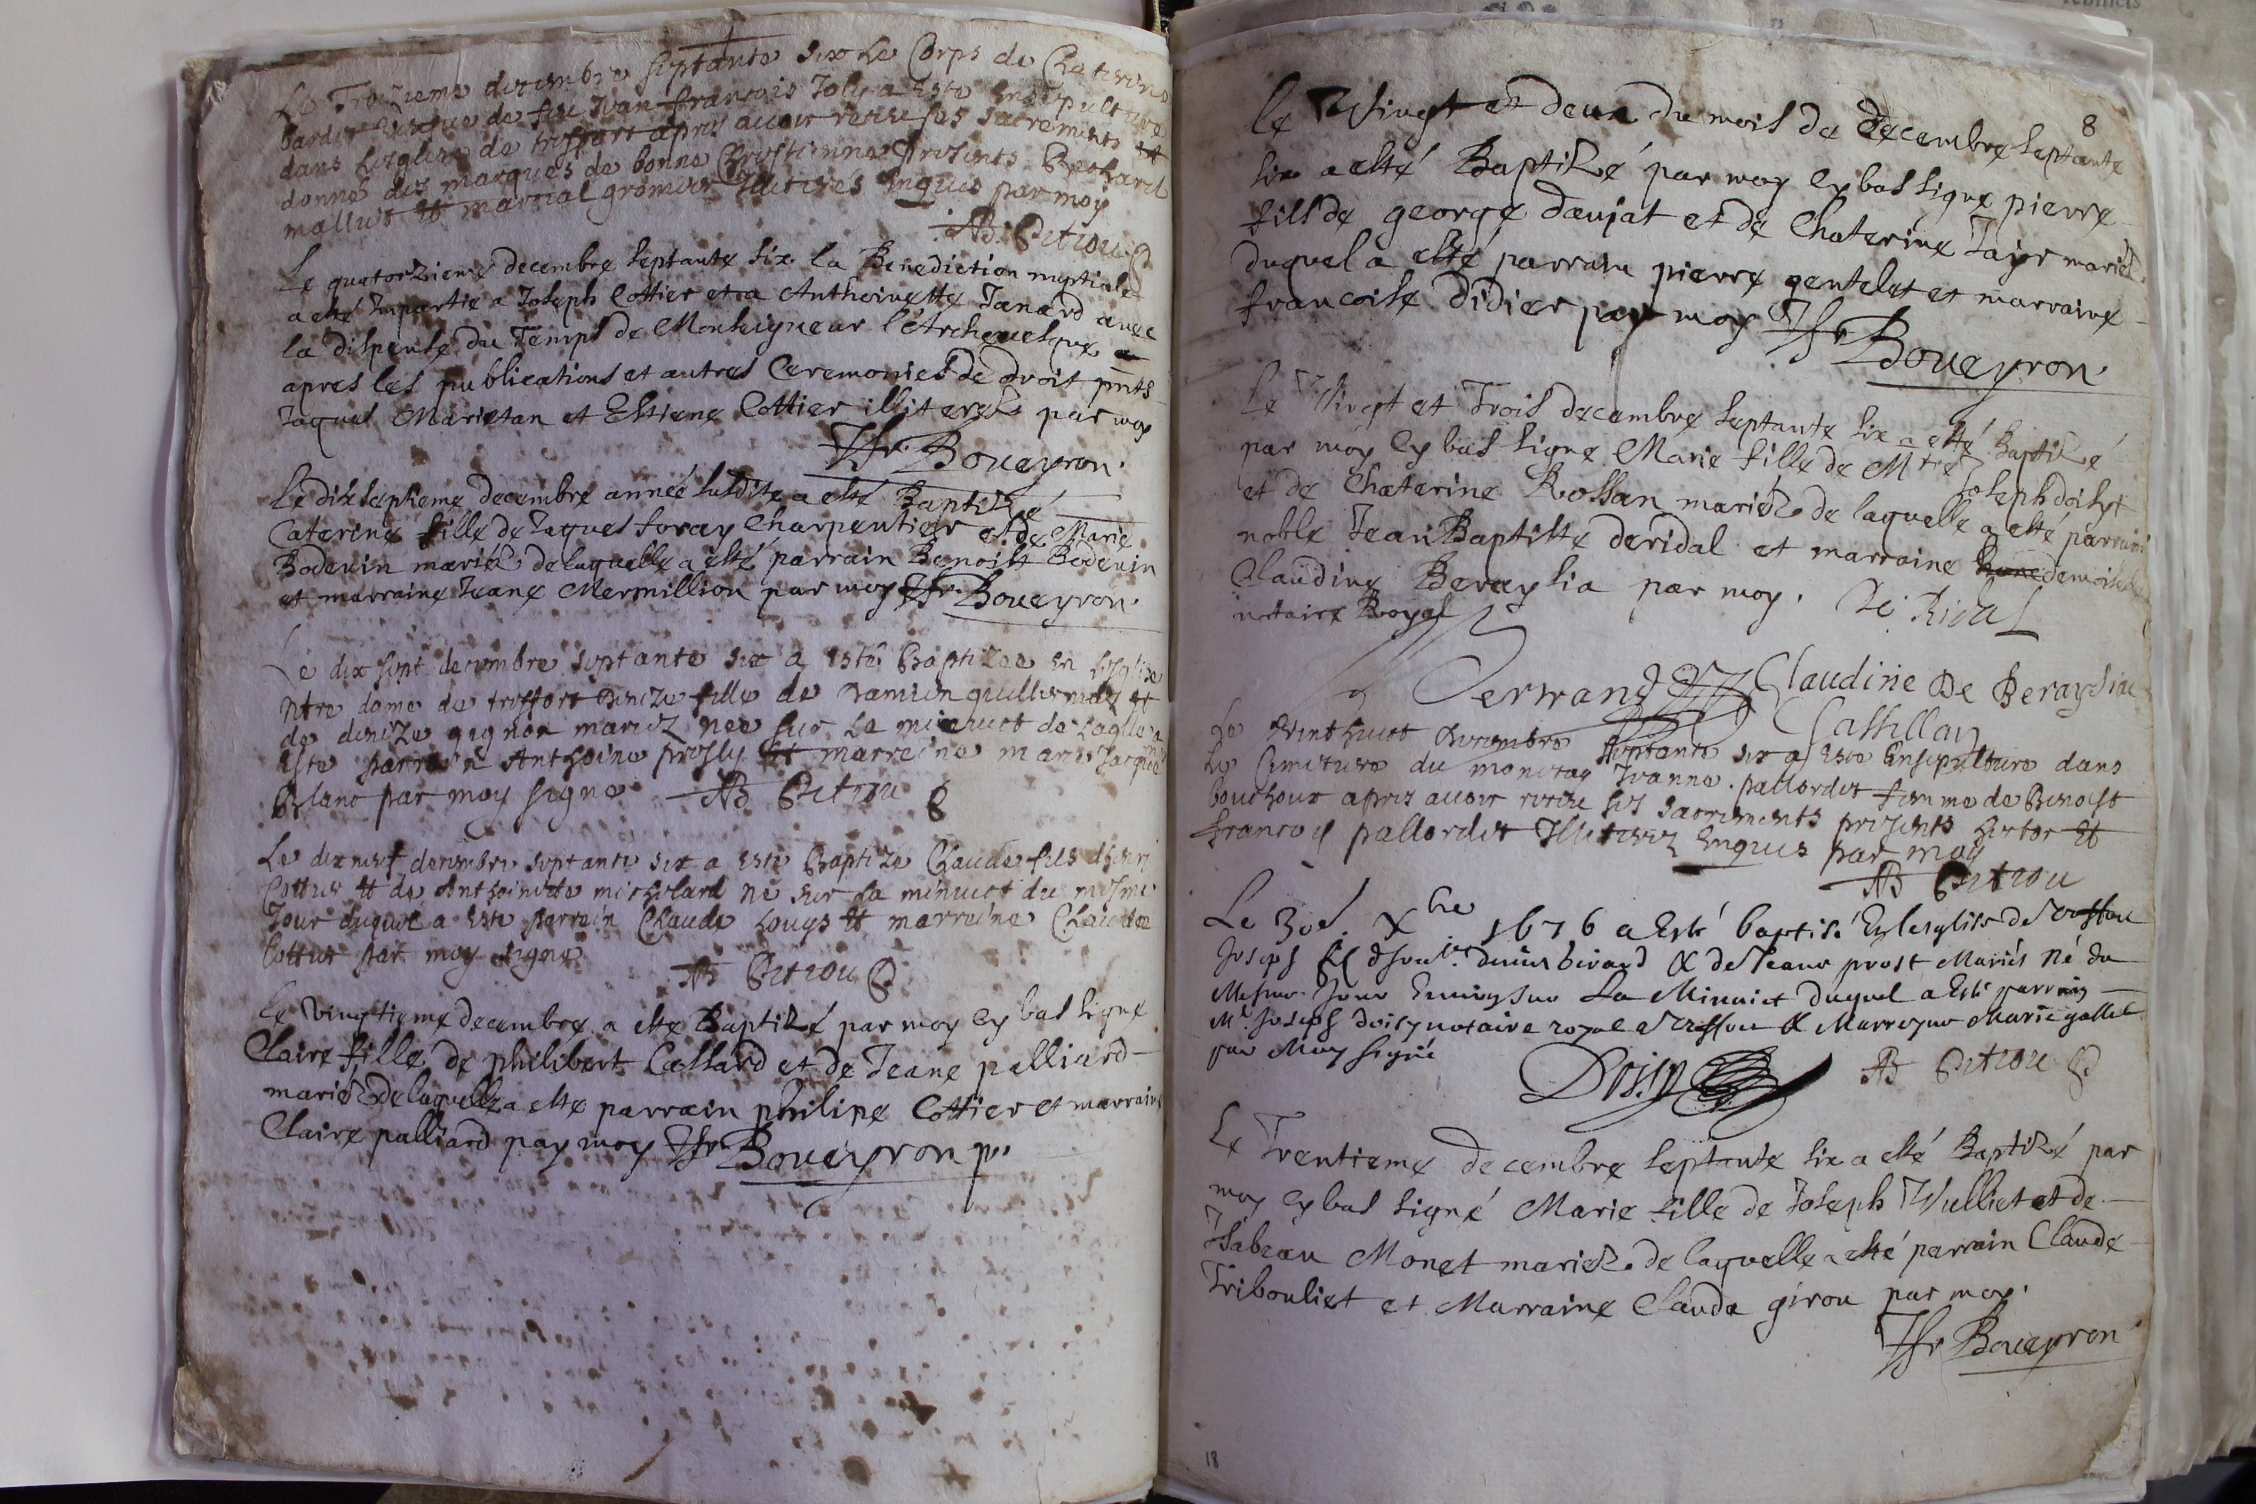 Le Troizieme dezembre septante six Le Corps de Chaterine
bardet vesve de feu Jean francois Joly a Este Ensepulture
dans Lesglize de treffort apres avoir reseu ses sacrements et
donné des marques de bonne Chrestienne presents
et martial gromier Illiteres Enquis par moy
AB Petiou
Le quatorzieme decembre septante six la Benediction nuptiale
a esté Impartie a Joseph Cottier et a Anthoinette Janard avec
la dispense du Temps de Monseigneur l'Archevesque
apres les publications et autres Ceremonies de droit pnts
Jaques Marietan et Estiene Cottier illiterez par moy
Boueyron
Le dixseptieme decembre année susdite a esté Baptizé
Caterine fille de Jaques foray Charpentier et de Marie
Bodevin mariez de laquelle a esté parrain Benoist Bodevin
et marraine Jeane Mermillion par moy Boueyron
Le dix sept decembre septante six a Esté Baptizee En Lesglize
Ntre dame de treffort Denize fille de damien guillermet et
de denize gignon mariez nee sur Le minuict de Laqlle a
Este parrein Anthoine prosly et marreine marie
Blanc par moy signe AB Petiou
Le dixneuf decembre septante six a Este Baptize Claude fils
Cottier et de Anthoinette michelard né sur La minuict du mesme
Jour duquel a Este parrein Claude Louys et marreine Claudée
Cottier par moy signe
AB Petiou
Le vingtieme decembre a esté Baptizé par moy cy bas signé
Claire fille de philibert Cassard et de Jeane palliard
mariez de laquelle a esté parrain philipe Cottier et marraine
Claire palliard par moy Boueyron p.
8
Le Vingt et deux du mois de decembre septante
six a esté Baptizé par moy cy bas signé pierre
fils de george daujat et de Chaterine Tajor mariez
duquel a esté parrain pierre gentelet et marraine
francoise didier par moy Boueyron
Le Vingt et Trois decembre septante six a esté Baptizé
par moy cy bas signé Marie fille de Mtre Joseph doisy
et de Chaterine Rossan mariez de laquelle a esté parrain
noble Jean Baptiste deridal et marraine demoiselle
Claudine Beraysia par moy. De Ridal
notaire Royal
Claudine De Beraysiat
Cassillay
Le Vinthuict decembre septante six a Este Ensepulture dans
Le Cimetiere du monetay Jeanne pallordet femme de Benoist
bouchoux apres avoir reseu ses sacrements presents hector et
francoys pallordet Illiterez Enquis par moy
AB Petiou
Le 30e. Xbre 1676 a Esté baptisé En lesglise de treffort
Joseph birard & de Jeane prost Mariés Né du
Mesme Jour Environ sur La Minuict duquel a Esté parrain
Mr. Joseph doisy notaire royal a treffort & Marreyne Marie gallet
par Moy signé
Doisy AB Petiou
Le Trentieme decembre septante six a esté Baptizé par
moy cy bas signé Marie fille de Joseph Vulliet et de
Isabeau Monet mariez de laquelle a esté parrain Claude
Tribouliet et Marraine Clauda girou par moy.
Boueyron
18